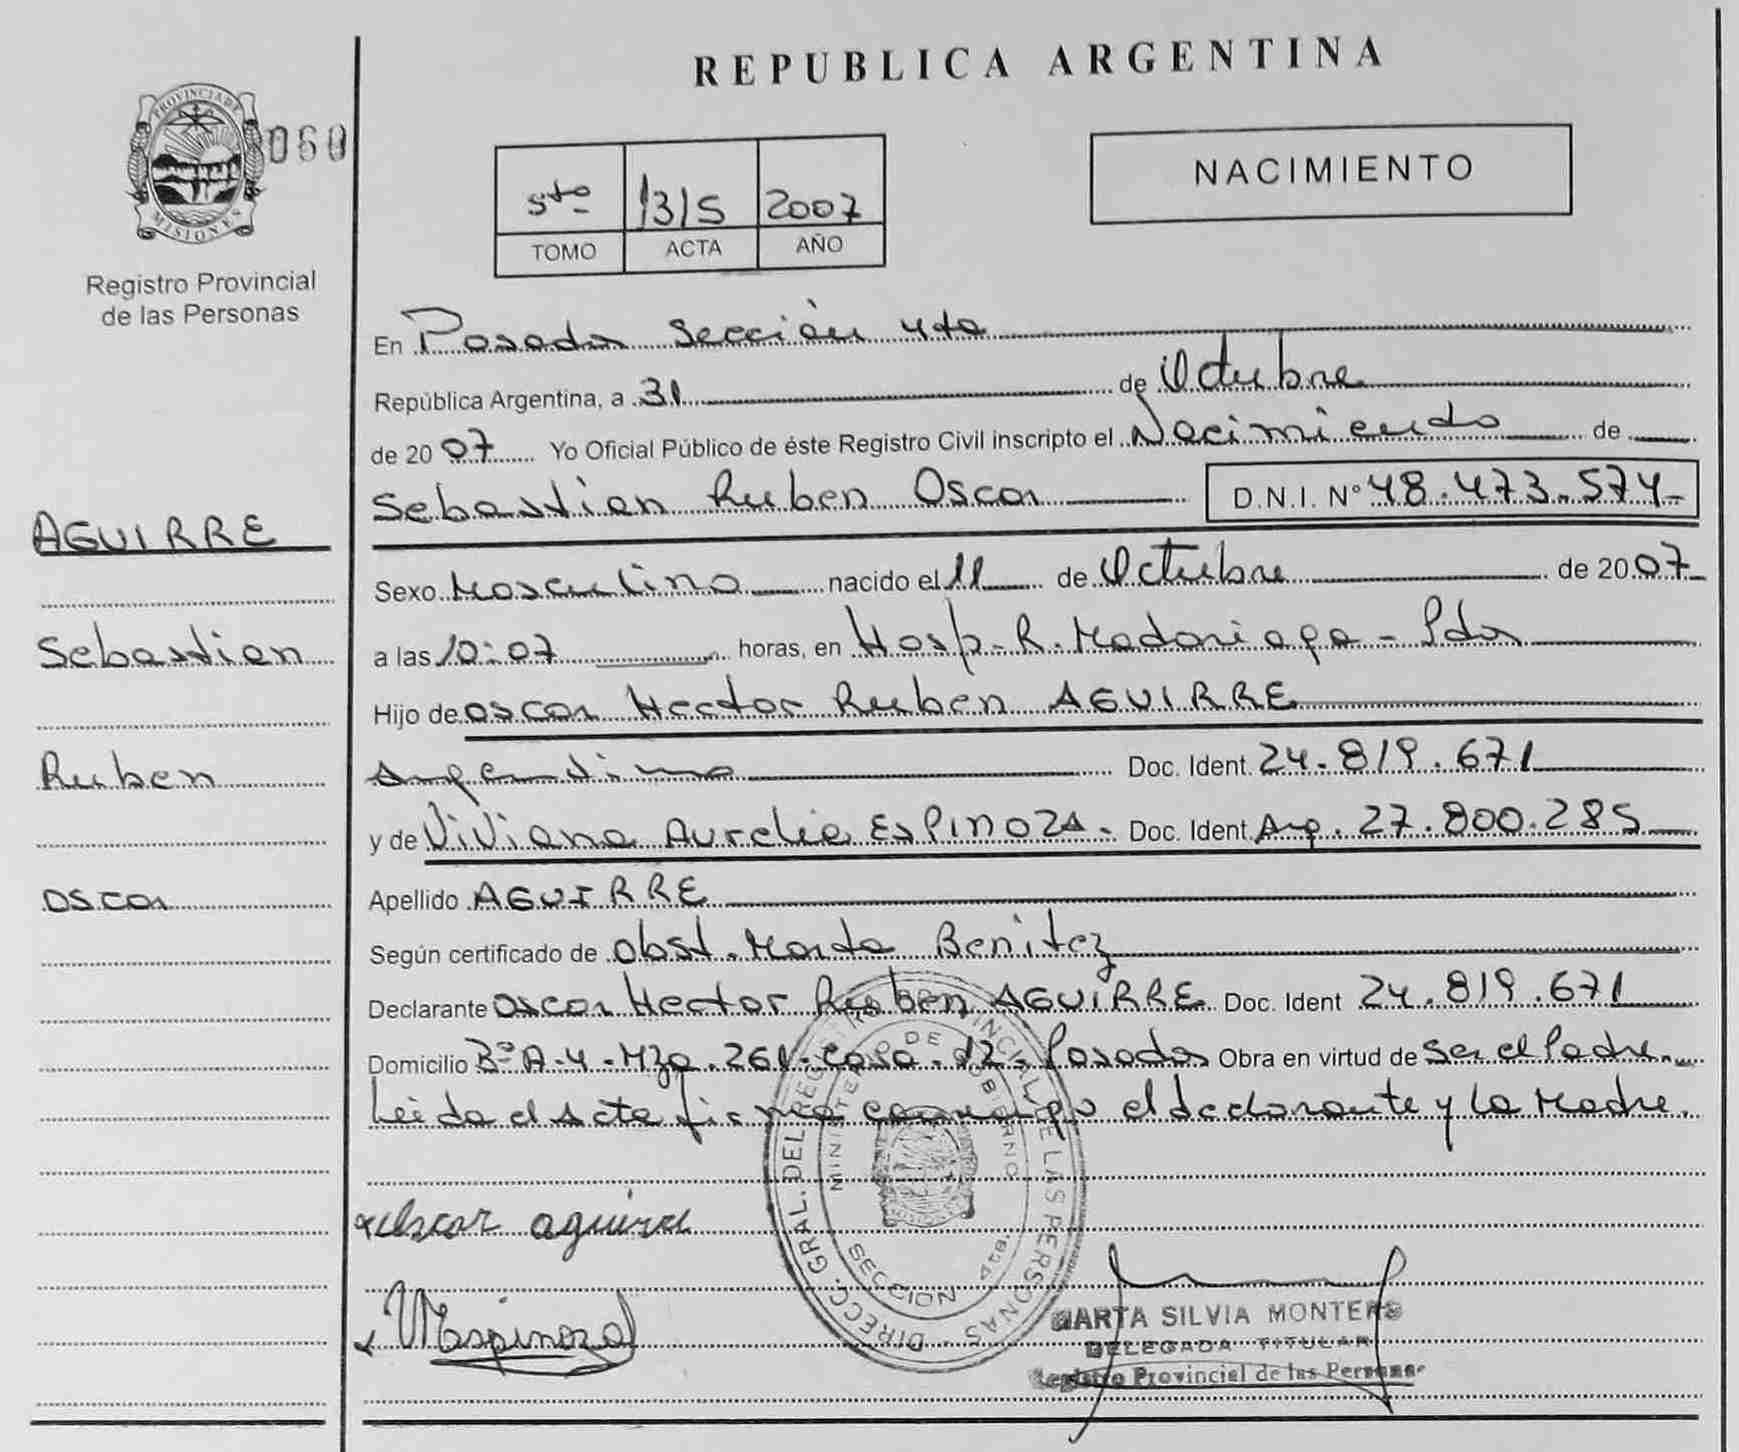 REPUBLICA ARGENTINA
PROVINCIA DE
MISIONES
060
Registro Provincial
de las Personas
5to 1315 2007
TOMO ACTA AÑO
NACIMIENTO
En Posadas Sección 4ta
República Argentina, a 31 de Octubre
de 2007 Yo Oficial Público de éste Registro Civil inscripto el Nacimiento de
Sebastian Ruben Oscar D.N.I. N° 48.473.574
AGUIRRE
Sexo Masculino nacido el 11 de Octubre de 2007
Sebastian
a las 10:07 horas, en Hosp. R. Madariaga - Pdas
Hijo de Oscar Hector Ruben AGUIRRE
Ruben
Argentino Doc. Ident. 24.819.671
y de Viviana Aurelia ESPINOZA. Doc. Ident. Arg. 27.800.285
Oscar
Apellido AGUIRRE
Según certificado de Obst. Marta Benitez
Declarante Oscar Hector Ruben AGUIRRE Doc. Ident 24.819.671
Domicilio Bº A-4 - Mza. 261 - Casa. 12 - Posadas Obra en virtud de Ser el Padre.
Leida el Acta firma conmigo el declarante y la Madre.
DIRECC. GRAL. DEL REGISTRO PROVINCIAL DE LAS PERSONAS
MINISTERIO DE GOBIERNO
SECCION 4ta.
Oscar aguirre
VAespinoza
MARTA SILVIA MONTERO
DELEGADA TITULAR
Registro Provincial de las Personas